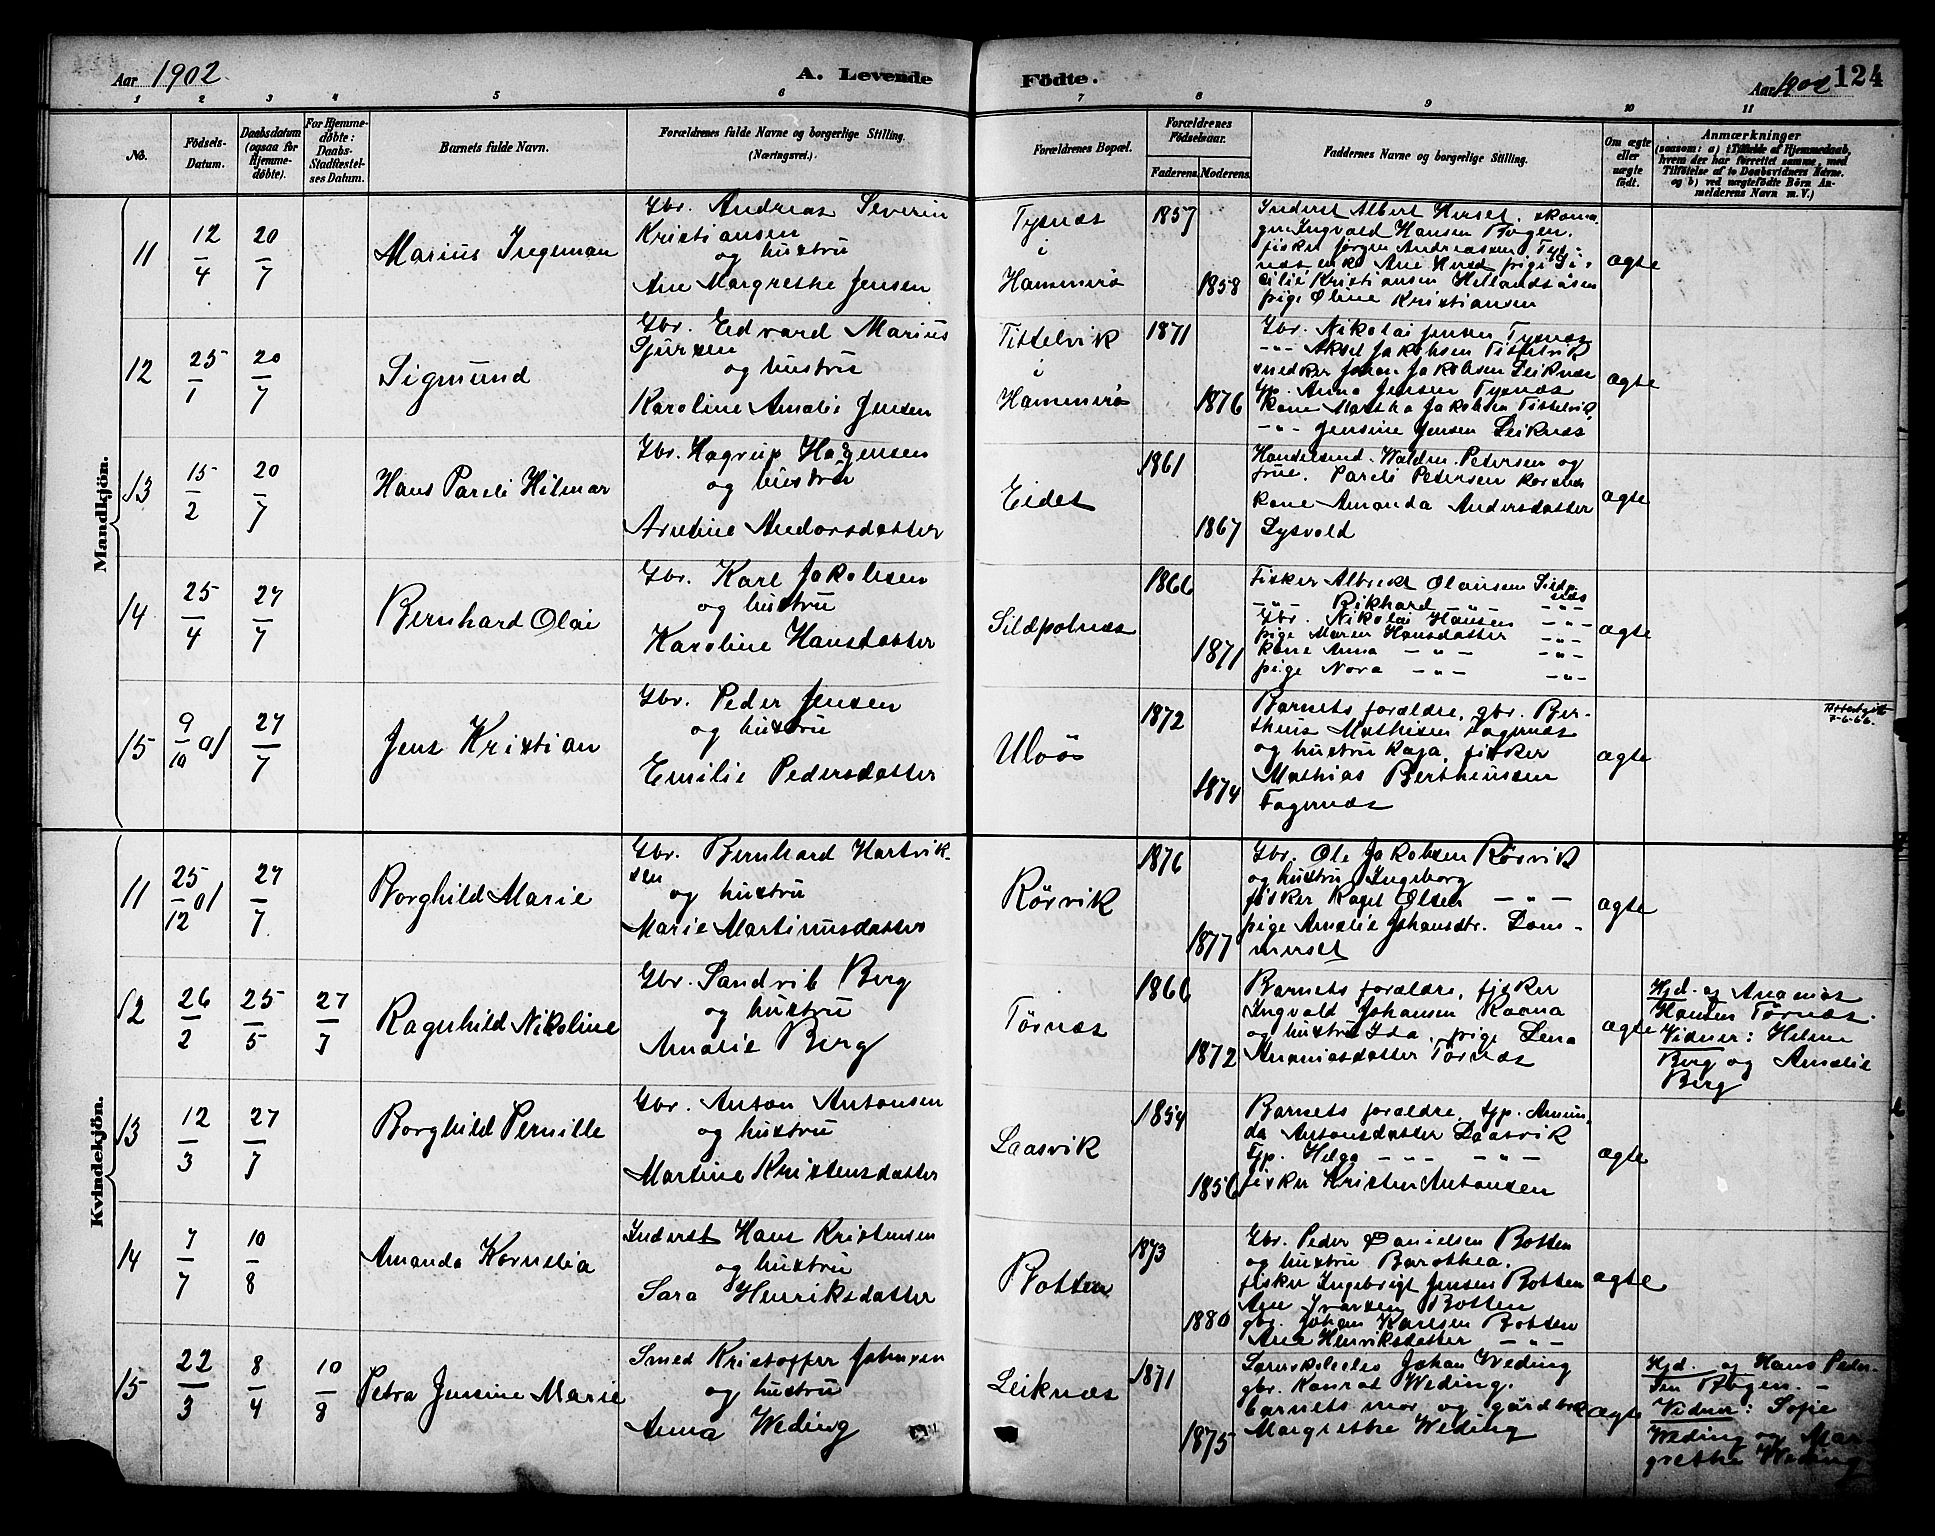 Aar 1902.
A. Levende
Födte.
Aar 1902
124
1 2 3 4 5 6 7 8 9 10 11
No.
Födsels-
Datum.
Daabsdatum
(ogsaa for
Hjemme-
döbte).
For Hjemme-
döbte:
Daabs-
Stadfæstel-
ses Datum.
Barnets fulde Navn.
Forældrenes fulde Navne og borgerlige Stilling.
(Næringsvei.)
Forældrenes Bopæl.
Forældrenes
Födselsaar.
Faderens. Moderens.
Faddernes Navne og borgerlige Stilling.
Om ægte
eller
uægte
födt.
Anmærkninger
(saasom: a) i Tilfælde af Hjemmedaab,
hvem der har forrettet samme, med
Tilföielse af to Daabsvidners Navne.
og b) ved uægtefödte Börn An-
melderens Navn m. V.)
Mandkjön.
11
12/4
20/7
Marius Ingeman
Gbr. Andreas Severin
Kristiansen
og hustru
Ane Margrethe Jensen
Tysnæs
i
Hammerö
1857
1858
Inderst Albert Hirset, skoma-
Ingvald Hansen Bogen.
fisker Jörgen Andreassen Tys-
næs, enke Ane pige
cilie Kristiansen Hellandsåsen
pige Oline Kristiansen
ægte
12
25/1
20/7
Sigmund
Gbr. Edvard Marius
Sjursen
og hustru
Karoline Amalie Jensen
Tittelvik
i
Hammerö
1871
1876
Gbr. Nikolai Jensen Tysnæs
-"- Aksel Jakobsen Tittelvik
snedker Johan Jakobsen Leiknæs
Anna Jensen Tysnæs
kone Martha Jakobsen Tittelvik
-"- Jensine Jensen Leiknæs
ægte
13
15/2
20/7
Hans Pareli Hilmar
Gbr. Hagrup Hagensen
og hustru
Arntine Andorsdatter
Eidet
1861
1867
Handelsmd. Waldm. Petersen og
frue. Pareli Petersen Korsnæs
kone Amanda Andersdatter
Lysvold
ægte
14
25/4
27/7
Bernhard Olai
Gbr. Karl Jakobsen
og hustru
Karoline Hansdatter
Sildpolnæs
1866
1871
Fisker Albrikt Olausen Sildp.
næs
-"- Rikhard -"- -"-
Gbr. Nikolai Hansen -"-
pige Maren Hansdatter -"-
kone Anna -"- -"-
pige Nora -"- -"-
ægte
15
9/10 01
27/7
Jens Kristian
Gbr. Peder Jensen
og hustru
Emilie Pedersdatter
Ulöö
1872
1874
Barnets forældre, gbr. Ber-
theus Mathisen Fagernæs
og hustru Kaja, fisker
Mathias Bertheussen
Fagernæs
ægte
7-6-66.
Kvindekjön.
11
25/12 01
27/7
Borghild Marie
Gbr. Bernhard Hartvik-
sen
og hustru
Marie Martinusdatter
Rörvik
1876
1877
Gbr. Ole Jakobsen Rörvik
og hustru Ingeborg
fisker Kaget Olsen -"-
pige Amalie Johansdtr. Dom-
merset
ægte
12
26/2
25/5
27/7
Ragnhild Nikoline
Gbr. Sandvik Berg
og hustru
Amalie Berg
Törnæs
1866
1872
Barnets forældre, fisker
Ingvald Johansen Ramna
og hustru Ida, pige Lena
Ananiasdatter Törnæs
ægte
Hjd. af Ananias
Hansen Törnæs.
Vidner: Helene
Berg og Amalie
Berg
13
12/3
27/7
Borghild Pernille
Gbr. Anton Antonsen
og hustru
Martine Kristensdatter
Laasvik
1854
1856
Barnets forældre, tjp. Aman-
da Antonsdatter Laasvik
tjp. Helga -"- -"-
fisker Kristen Antonsen
ægte
14
7/7
10/8
Amanda Kornelia
Inderst Hans Kristensen
og hustru
Sara Henriksdatter
Botten
1873
1880
Gbr. Peder Danielsen Botten
og hustru Barothea.
fisker Ingebrigt Jensen Botten
Ane Ivarsen Botten
gbr. Johan Karlsen Botten
Ane Henriksdatter -"-
ægte
15
22/3
8/4
10/8
Petra Jensine Marie
Smed Kristoffer Johnsen
og hustru
Anna Weding
Leiknæs
1871
1875
Johan Weding
gbr. Konrad Weding.
barnets mor og gårdbr.
Margrethe Weding
ægte
Hjd. af Hans Peder-
sen Bogen. -
Vidner: Sofie
Weding og Mar-
grethe Weding